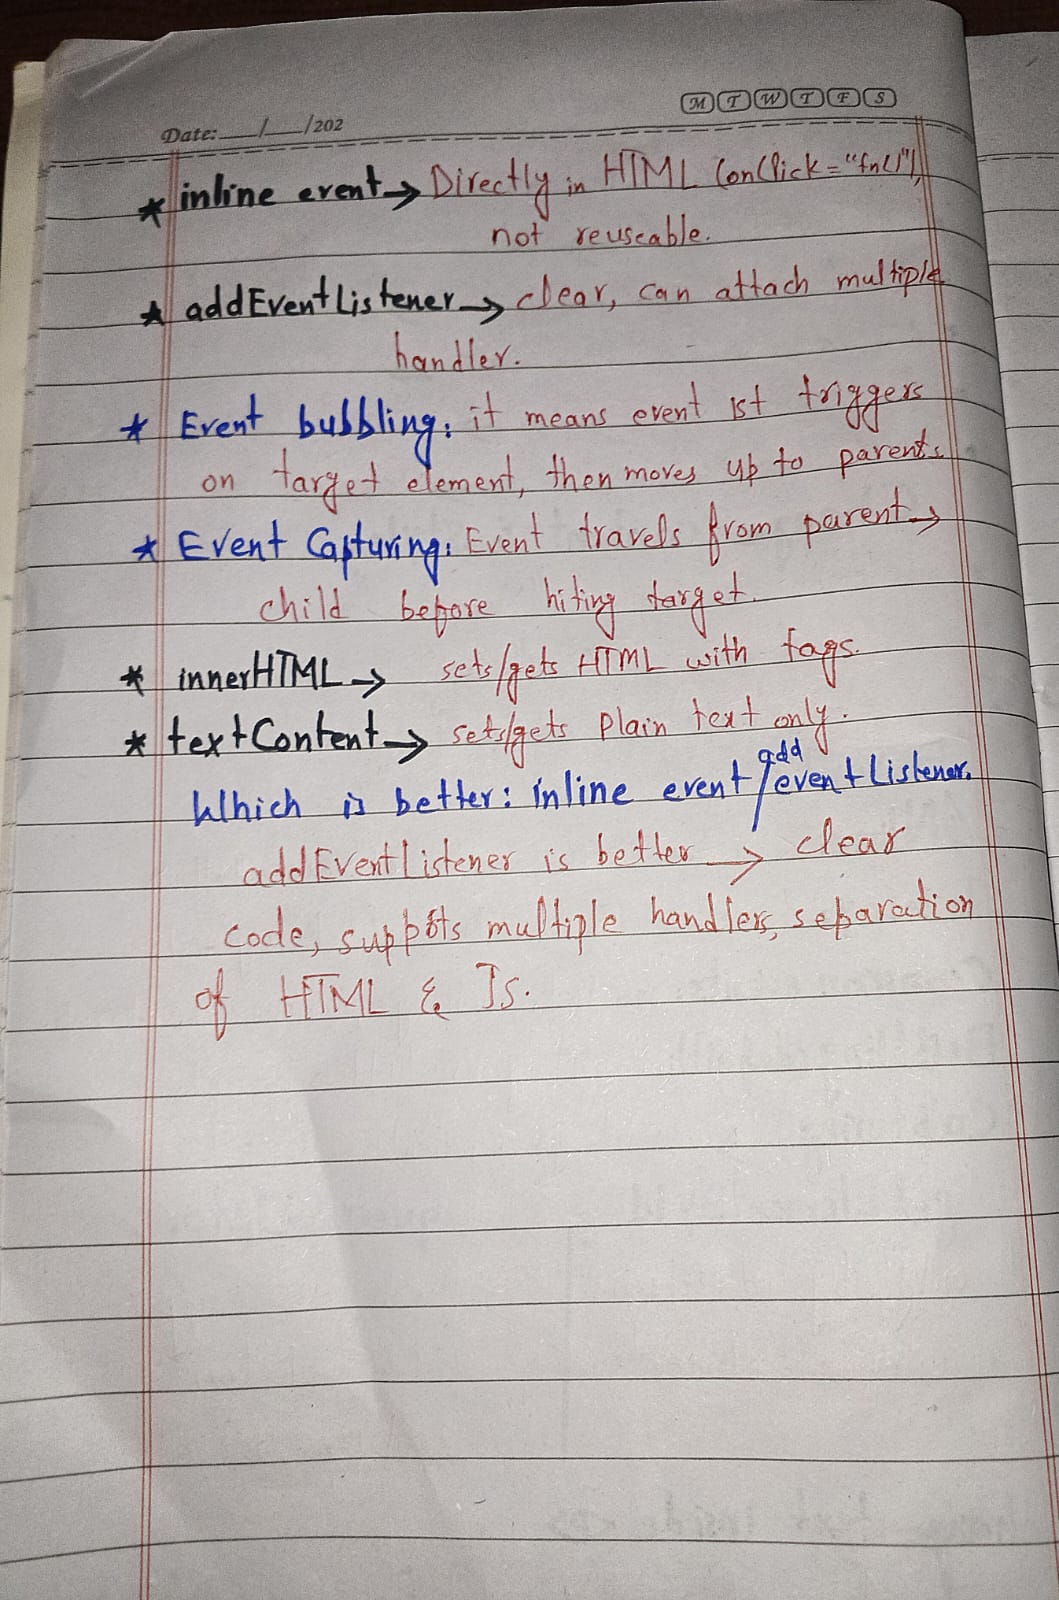 M T W T F S
Date:___/___/202
* inline event → Directly in HTML (onClick="fn()"),
not reuseable.
* addEventListener → clear, can attach multiple
handler.
* Event bubbling: it means event 1st triggers
on target element, then moves up to parents.
* Event Capturing: Event travels from parent →
child before hiting target.
* innerHTML → sets/gets HTML with tags.
* textContent → sets/gets Plain text only.
Which is better: inline event / add eventListener.
addEventListener is better → clear
code, suppots multiple handlers, separation
of HTML & Js.